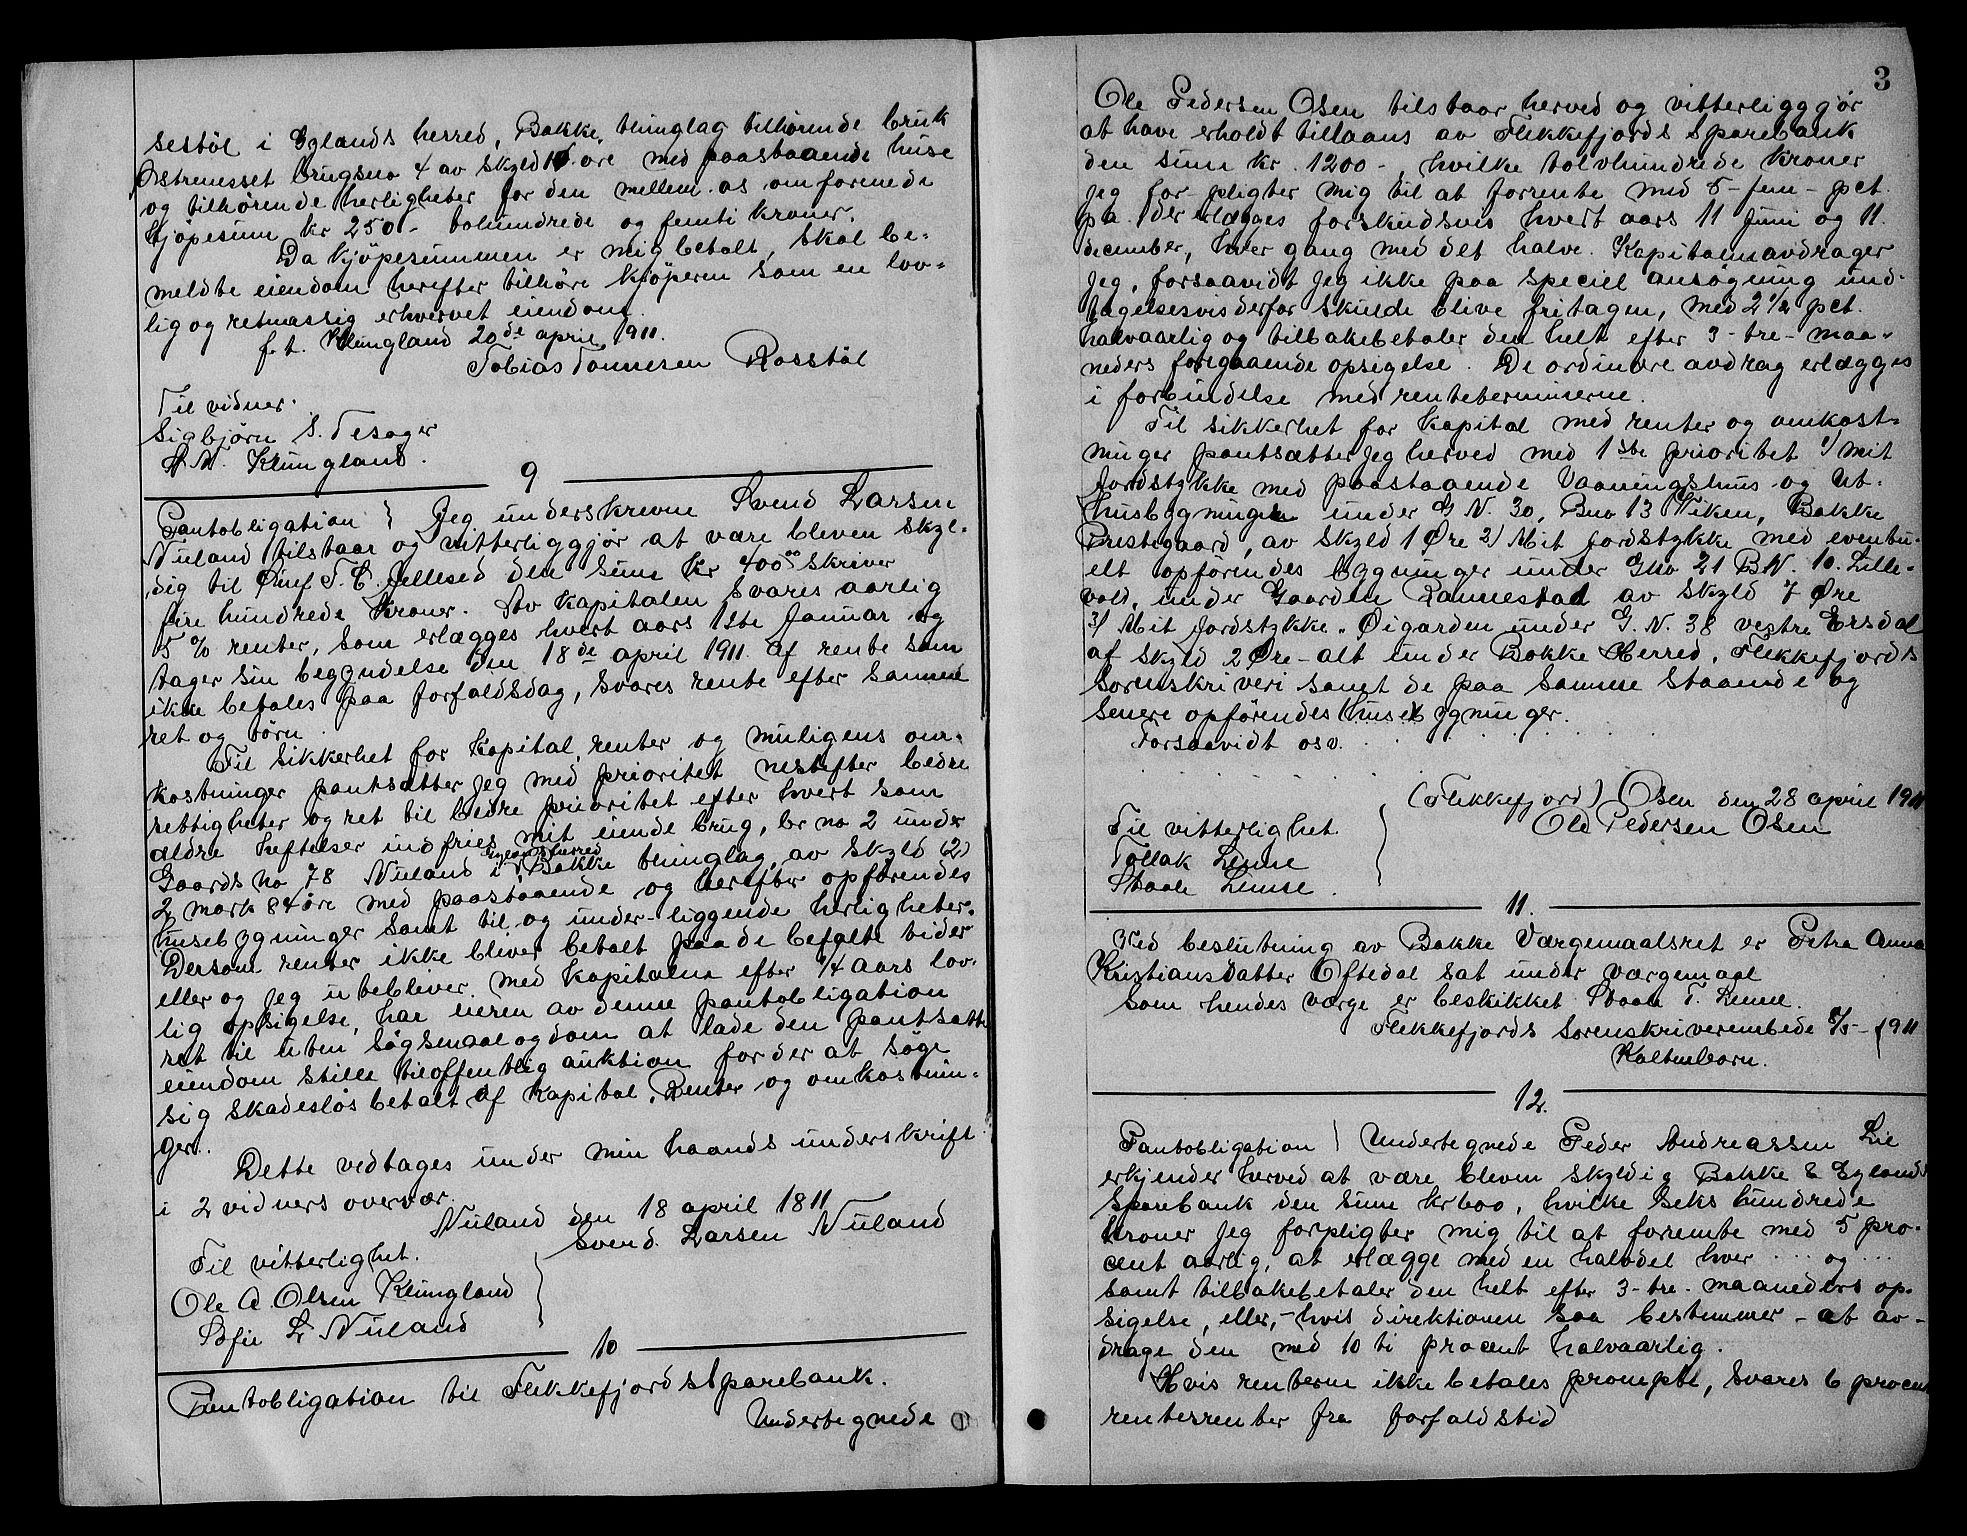 sestöl i Eglands herred, Bakke thinglag tilhörende bruk
Östrenesset brugsno 4 av skyld 15 öre med paastaaende huse
og tilhörende herligheter for den mellem os omforenede
kjöpesum kr 250 - tohundrede og femti kroner.
Da kjöpesummen er mig betalt, skal be-
meldte eiendom herefter tilhöre kjöperen som en lov-
lig og retmæssig erhvervet eiendom.
f. t. Klungland 20de april 1911.
Tobias Tonnesen Rosstöl
Til vidner.
Sigbjörn S. Tesager
A. M. Klungland.
9
Pantobligation } Jeg underskrevne Svend Larsen
Nuland tilstaar og vitterliggjør at være bleven skyl-
dig til Önuf T. E. Jellesed den sum kr 400⁰⁰ skriver
fire hundrede kroner. Av kapitalen svares aarlig
5 % renter, som erlægges hvert aars 1ste Januar og
tager sin begyndelse den 18de april 1911. Af rente som
ikke betales paa forfaldsdag, svares rente efter samme
ret og törn.
Til sikkerhet for kapital, renter og muligens om-
kostninger pantsætter jeg med prioritet nestefter bedre
rettigheter og ret til bedre prioritet efter hvert som
ældre heftelser indfries mit eiende brug, br no 2 under
Gaards no 78 Nuland i Eglands herred Bakke thinglag, av skyld (2)
2 mark 84 öre med paastaaende og herefter opförendes
husebygninger samt til og under-liggende herligheter.
Dersom renter ikke bliver betalt paa de befalte tider
eller og jeg utebliver med kapitalen efter 1/4 aars lov-
lig opsigelse, har eieren av denne pantobligation
ret til uten sögsmaal og dom at lade den pantsatte
eiendom stille til offentlig auktion for der at söge
sig skadeslös betalt af kapital, Renter og omkostnin-
ger.
Dette vedtages under min haands underskrift
i 2 vidners overvær.
Nuland den 18 april 1811
Svend. Larsen Nuland
Til vitterlighet.
Ole A. Olsen Klungland
Sofie L Nuland
10
Pantobligation til Flekkefjords Sparebank.
Undertegnede
3
Ole Pedersen Osen tilstaar herved og vitterligggjör
at have erholdt tillaans av Flekkefjords Sparebank
den sum kr. 1200 - hvilke tolvhundrede kroner
jeg for-pligter mig til at forrente med 5 - fem - pct.
pa. der erlægges forskudsvis hvert aars 11 Juni og 11
december, hver gang med det halve. Kapitalen avdrager
jeg, forsaavidt jeg ikke paa speciel ansögning und-
tagelsesvis derfor skulde blive fritagen, med 2 1/2 pct.
halvaarlig og tilbakebetaler den helt efter 3 - tre - maa-
neders foregaaende opsigelse. De ordinære avdrag erlægges
i forbindelse med renteterminerne.
Til sikkerhet for kapital med renter og omkost-
ninger pantsætter jeg herved med 1ste prioritet 1/ mit
Jordstykke med paastaaende Vaaningshus og Ut-
husbygninger under G. N. 30, Bno 13 Viken, Bakke
Prestegaard, av skyld 1 Øre 2/ Mit Jordstykke med eventu-
elt opförendes bygninger under Gno 21 B.N. 10. Lille-
vold, under Gaarden Rannestad av skyld 7 Øre
3/ Mit Jordstykke „ Øigarden under G. N. 38 vestre Ersdal
af skyld 2 Øre - alt under Bakke Herred, Flekkefjords
Sorenskriveri samt de paa samme staaende og
senere opförendes husebygninger.
Forsaavidt osv.
(Flekkefjord) Osen den 28 april 1911
Ole Pedersen Osen
Til vitterlighet.
Tollak Lunne
Staale Lunne.
11.
Ved beslutning av Bakke Værgemaalsret er Petra Anna
Kristiansdatter Oftedal sat under værgemaal
som hendes værge er beskikket Staale T. Lunne.
Flekkefjords Sorenskriverembede 8/5 - 1911
Kaltenborn.
12.
Pantobligation } Undertegnede Peder Andreassen Lie
erkjender herved at være bleven skyldig Bakke & Eglands
Sparebank den sum kr 600, hvilke seks hundrede
kroner jeg forpligter mig til at forrente med 5 pro-
cent aarlig, at erlægge med en halvdel hver .... og ....
samt tilbakebetaler den helt efter 3 - tre - maaneders op-
sigelse, eller, - hvis direktionen saa bestemmer - at av-
drage den med 10 ti procent halvaarlig.
Hvis renterne ikke betales prompte, svares 6 procent
rentesrenter fra forfaldstid